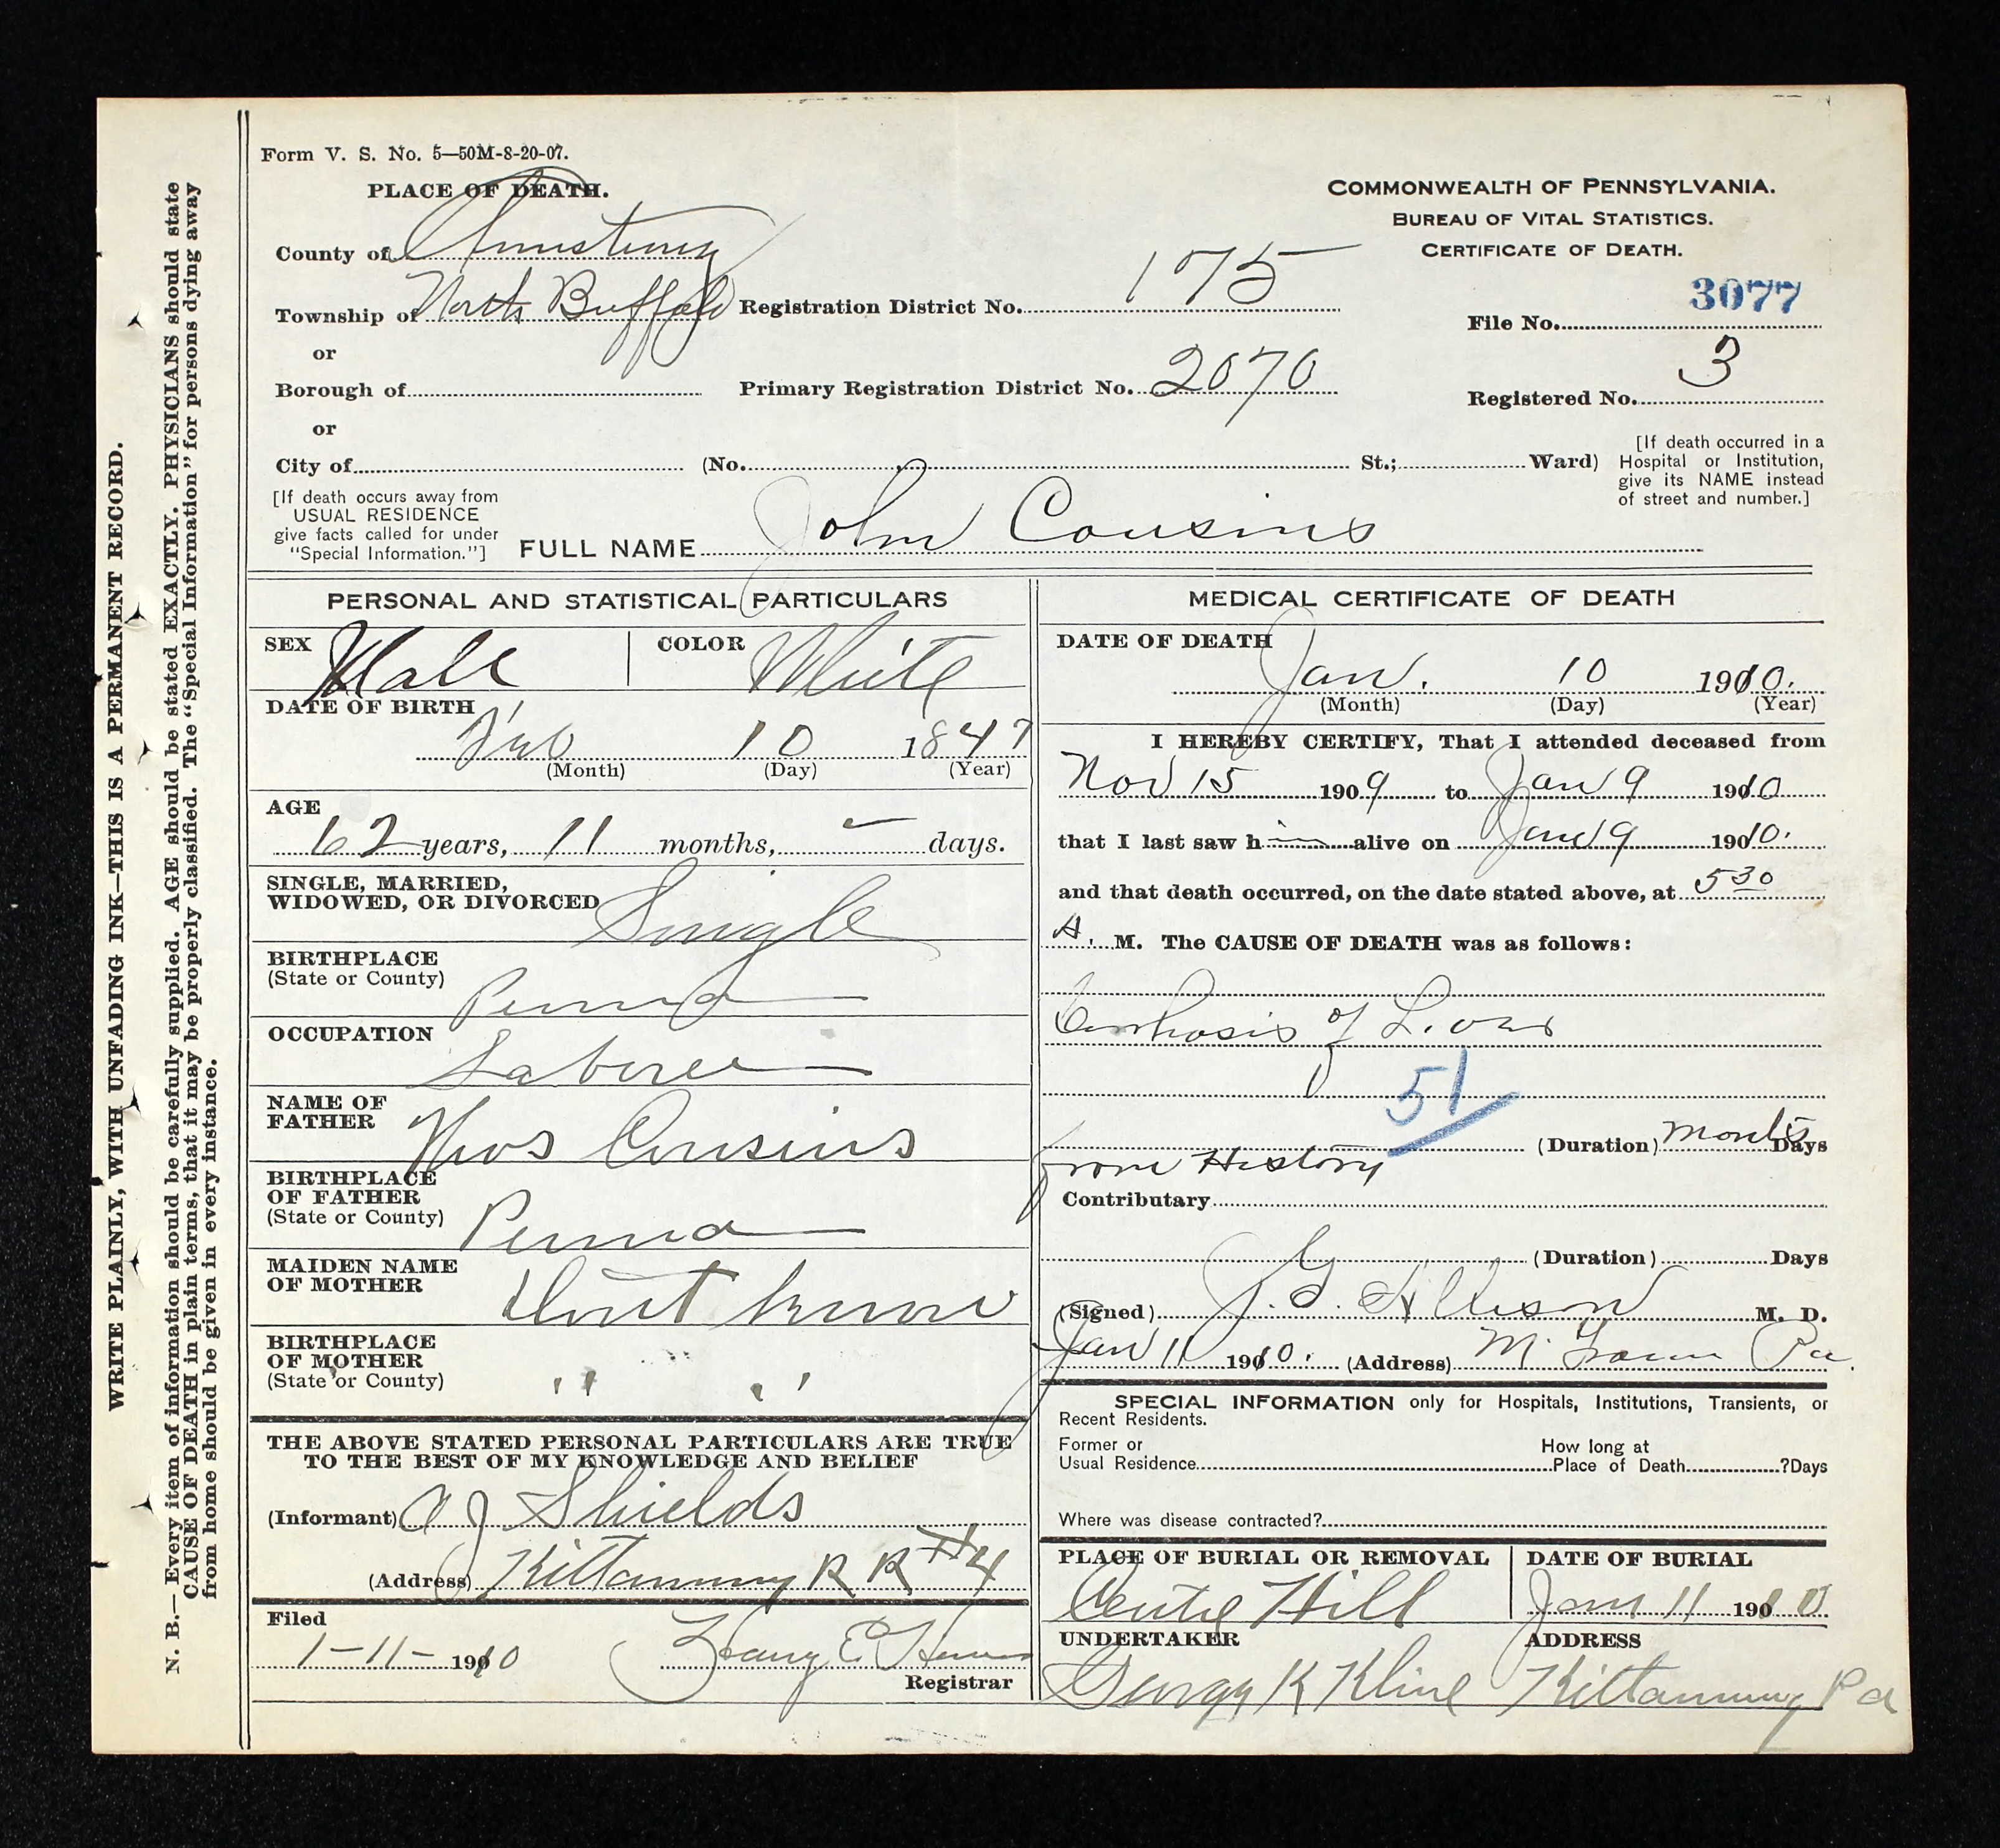 Form V. S. No. 5—50M-8-20-07.
PLACE OF DEATH.
County of Armstrong
Township of North Buffalo
or
Borough of
or
City of (No. St.; Ward)
Registration District No. 175
Primary Registration District No. 2070
COMMONWEALTH OF PENNSYLVANIA.
BUREAU OF VITAL STATISTICS.
CERTIFICATE OF DEATH.
File No. 3077
Registered No. 3
[If death occurred in a
Hospital or Institution,
give its NAME instead
of street and number.]
[If death occurs away from
USUAL RESIDENCE
give facts called for under
"Special Information."]
FULL NAME John Cousins
PERSONAL AND STATISTICAL PARTICULARS
SEX Male COLOR White
DATE OF BIRTH
Feb 10 1847
(Month) (Day) (Year)
AGE
62 years, 11 months, — days.
SINGLE, MARRIED,
WIDOWED, OR DIVORCED Single
BIRTHPLACE
(State or County) Penna
OCCUPATION Laborer
NAME OF
FATHER Cousins
BIRTHPLACE
OF FATHER
(State or County) Penna
MAIDEN NAME
OF MOTHER Dont know
BIRTHPLACE
OF MOTHER
(State or County) " "
THE ABOVE STATED PERSONAL PARTICULARS ARE TRUE
TO THE BEST OF MY KNOWLEDGE AND BELIEF
(Informant) A J Shields
(Address) Kittanning R R #4
Filed
1-11- 1910 Harry E.
Registrar
MEDICAL CERTIFICATE OF DEATH
DATE OF DEATH
Jan. 10 1910.
(Month) (Day) (Year)
I HEREBY CERTIFY, That I attended deceased from
Nov 15 1909 to Jan 9 1910
that I last saw him alive on Jan 9 1910.
and that death occurred, on the date stated above, at 5 30
A. M. The CAUSE OF DEATH was as follows:
Cirrhosis of Liver
51
(Duration) months Days
from History
Contributary
(Duration) Days
(Signed) J. G. Allison M. D.
Jan 11 1910. (Address) Pa.
SPECIAL INFORMATION only for Hospitals, Institutions, Transients, or
Recent Residents.
Former or
Usual Residence
How long at
Place of Death ?Days
Where was disease contracted?
PLACE OF BURIAL OR REMOVAL
Centre Hill
DATE OF BURIAL
Jan 11 1910
UNDERTAKER
George K Kline
ADDRESS
Kittanning Pa
WRITE PLAINLY, WITH UNFADING INK—THIS IS A PERMANENT RECORD.
N. B.—Every item of information should be carefully supplied. AGE should be stated EXACTLY. PHYSICIANS should state
CAUSE OF DEATH in plain terms, that it may be properly classified. The "Special Information" for persons dying away
from home should be given in every instance.